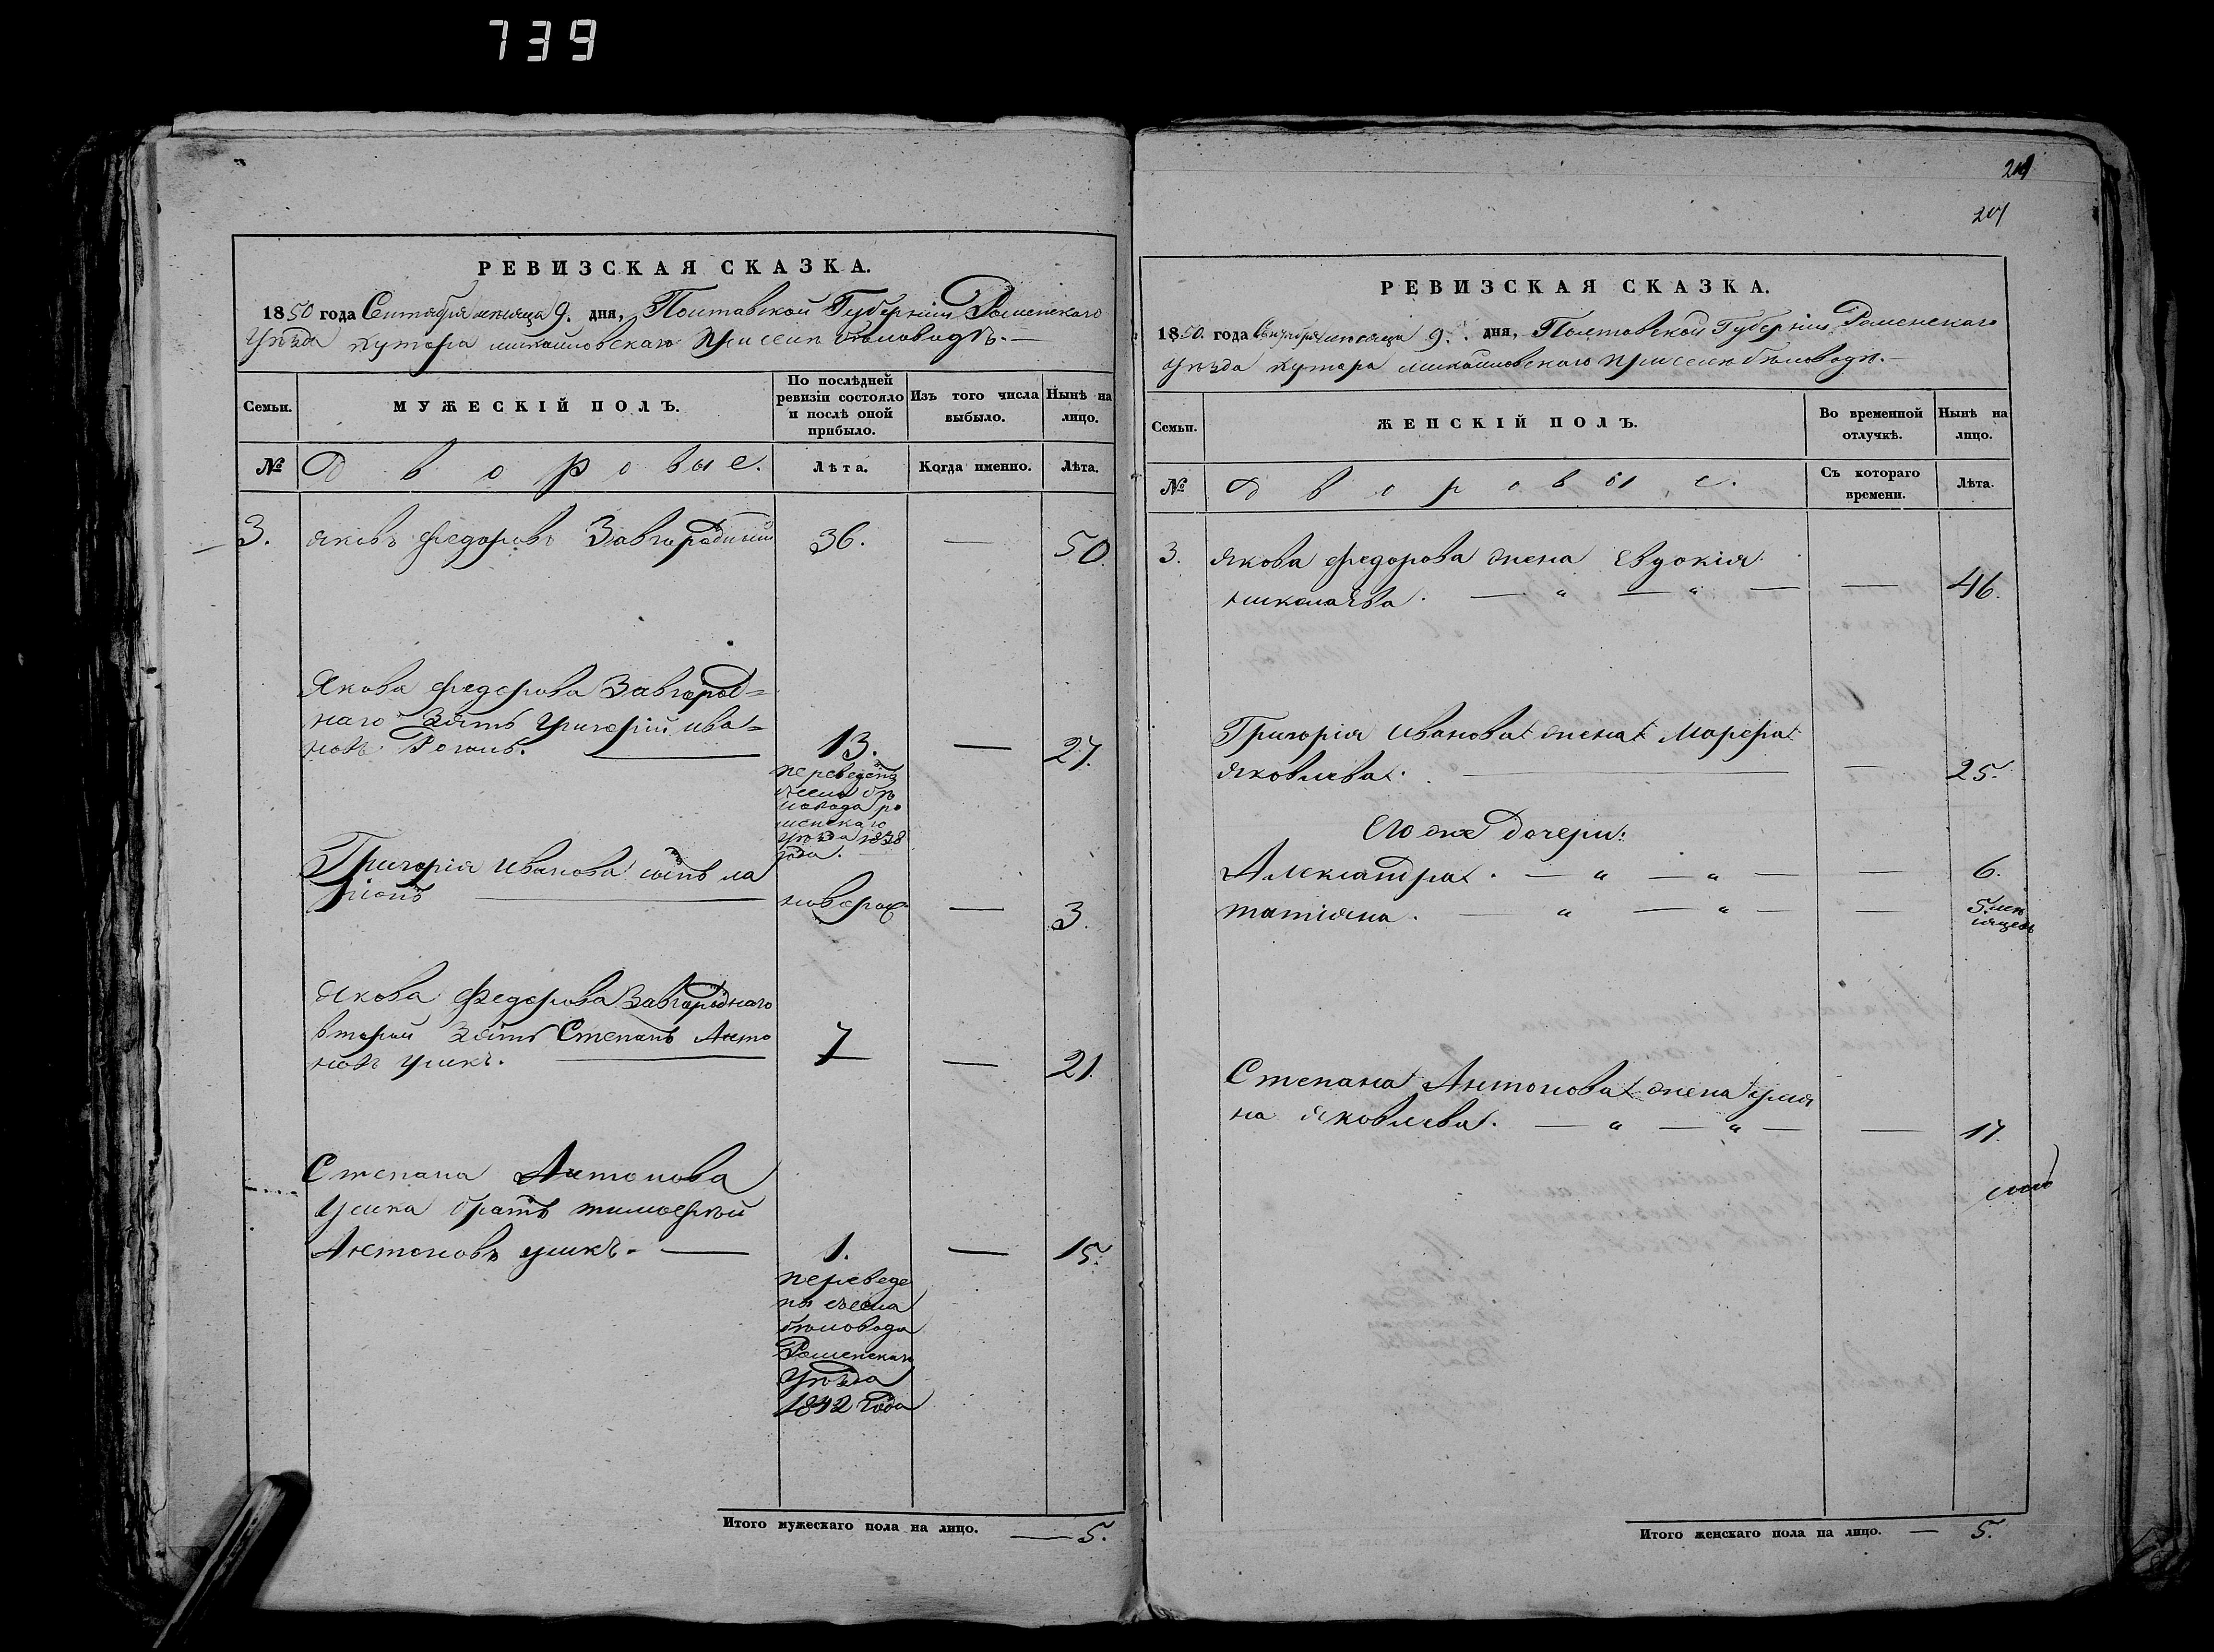 739
РЕВИЗСКАЯ СКАЗКА.
1850 года Сентября месяца 9. дня, Полтавской Губерніи Роменскаго
Уѣзда хутора михайловскаго при селѣ бѣловодѣ.
Семьи.
МУЖЕСКІЙ ПОЛЪ.
По послѣдней ревизіи состояло и послѣ оной прибыло.
Изъ того числа выбыло.
Нынѣ на лицо.
№
Дворовые.
Лѣта.
Когда именно.
Лѣта.
3. яковъ федоровъ Завгородній 36. — 50.
Якова федорова Завгород=
наго Зять григорій ива=
новъ Рогаль. 13. — 27.
переведенъ
изсела бѣ
ловода ро
менскаго
уѣзда 1838
года.
Григорія иванова сынъ ла
ріонъ новорож — 3.
Якова федорова Завгороднаго
второй Зять Степанъ Анто
новъ усикъ. 7 — 21.
Степана Антонова
Усика братъ тимофей
Антоновъ усикъ. 1. — 15.
переведе
ны изсела
бѣловода
Роменскаго
Уѣзда
1842 года
Итого мужескаго пола на лицо. — 5.
201
РЕВИЗСКАЯ СКАЗКА.
1850. года Сентября месяца 9. дня, Полтавской Губерніи Роменскаго
уѣзда хутора михайловскаго при селѣ бѣловодѣ.
Семьи.
ЖЕНСКІЙ ПОЛЪ.
Во временной отлучкѣ.
Нынѣ на лицо.
№
Дворовые.
Съ котораго времени.
Лѣта.
3. якова федорова жена Евдокія
николаева. — " — " — — 46.
Григорія иванова жена Марфа
яковлева. — — 25.
Его же дочери:
Александра. — " — " — — 6.
татіяна. — " — " — — 5 мѣ
сяцевъ
Степана Антонова жена улья
на яковлева. — " — " — — 17.
Итого женскаго пола на лицо. — 5.